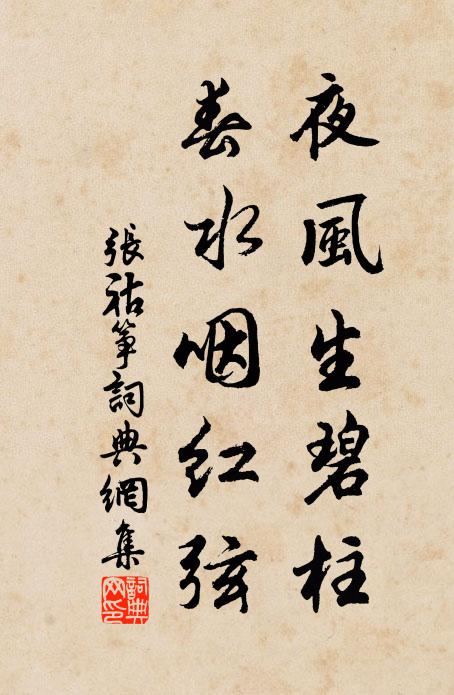 夜風生碧柱
春水咽红弦
張祜箏詞典網集
詞典
網印